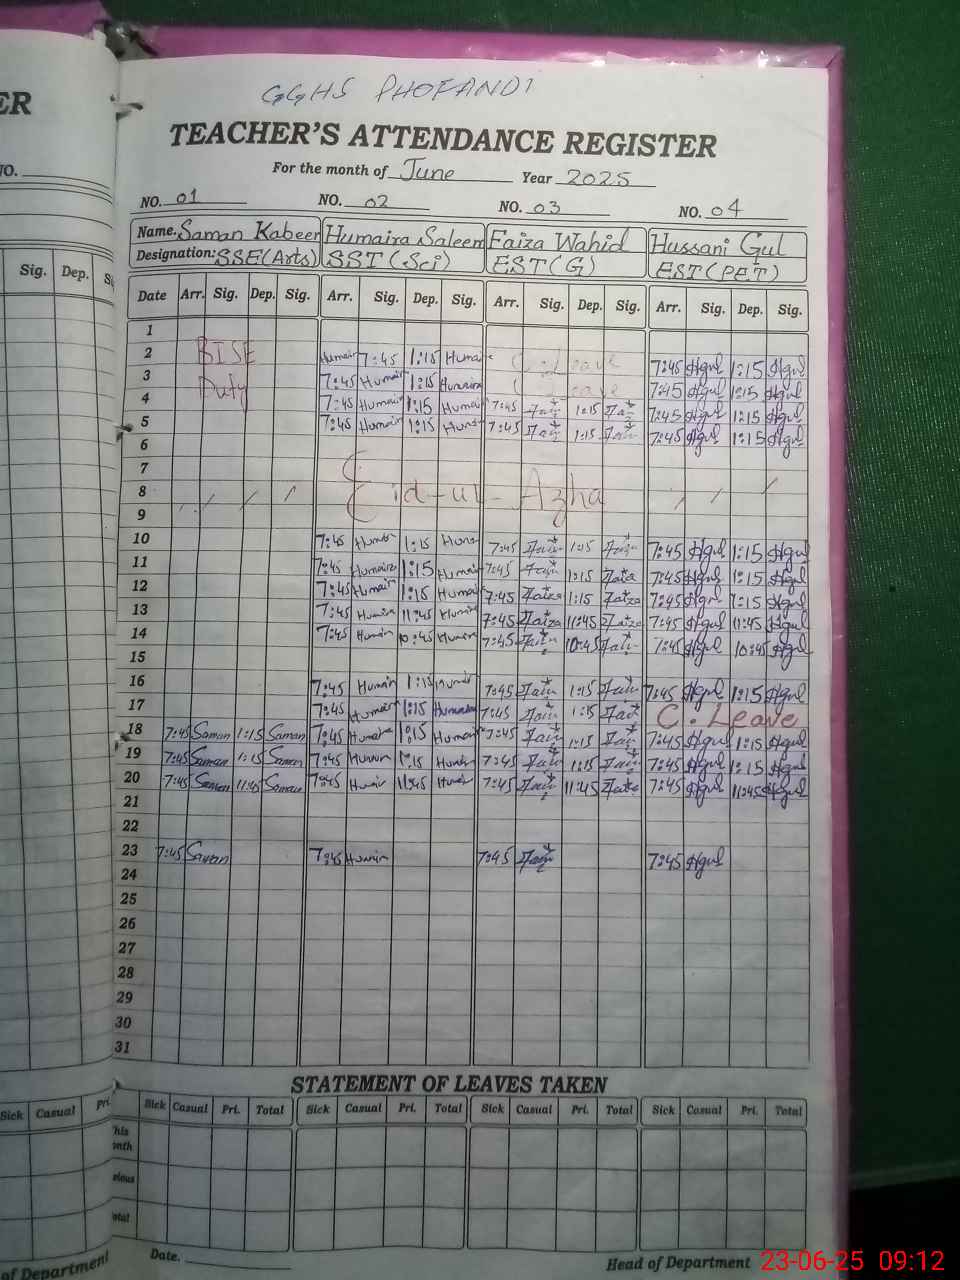 GGHS PHOFANDI
ER TEACHER'S ATTENDANCE REGISTER
For the month of June Year 2025
NO. NO. 01 NO. 02 NO. 03 NO. 04
Name. Saman Kabeer Humaira Saleem Faiza Wahid Hussani Gul
Designation: SSE(Arts) SST (Sci) EST(G) EST(PET)
Sig. Dep. Date Arr. Sig. Dep. Sig. Arr. Sig. Dep. Sig. Arr. Sig. Dep. Sig. Arr. Sig. Dep. Sig.
1
2 BISE Humair 7:45 1:15 Humai C. Leave 7:45 Hgul 1:15 Hgul
3 Duty 7:45 Humair 1:15 Humaira C. Leave 7:45 Hgul 1:15 Hgul
4 7:45 Humair 1:15 Humai 7:45 Faiz 1:15 Faiz 7:45 Hgul 1:15 Hgul
5 7:45 Humair 1:15 7:45 Faiz 1:15 Faiz 7:45 Hgul 1:15 Hgul
6
7
8 Eid-ul-Azha
9
10 7:45 Humair 1:15 7:45 Faiz 1:15 Faiz 7:45 Hgul 1:15 Hgul
11 7:45 Humaira 1:15 Humair 7:45 Faiz 1:15 Faiza 7:45 Hgul 1:15 Hgul
12 7:45 Humair 1:15 Humai 7:45 Faiza 1:15 Faiza 7:45 Hgul 1:15 Hgul
13 7:45 Humair 11:45 Humair 7:45 Faiza 11:45 Faiza 7:45 Hgul 11:45 Hgul
14 7:45 Humair 10:45 Humair 7:45 Faiz 10:45 Faiz 7:45 Hgul 10:45 Hgul
15
16 7:45 Humair 1:15 Humair 7:45 Faiz 1:15 Faiz 7:45 Hgul 1:15 Hgul
17 7:45 Humair 1:15 Humaira 7:45 Faiz 1:15 Faiz C. Leave
18 7:45 Saman 1:15 Saman 7:45 Humaira 1:15 Humair 7:45 Faiz 1:15 Faiz 7:45 Hgul 1:15 Hgul
19 7:45 Saman 1:15 Saman 7:45 Humair 1:15 Humair 7:45 Faiz 1:15 Faiz 7:45 Hgul 1:15 Hgul
20 7:45 Saman 11:45 Saman 7:45 Humair 11:45 Humair 7:45 Faiz 11:45 Faiza 7:45 Hgul 11:45 Hgul
21
22
23 7:45 Saman 7:45 Humair 7:45 Faiz 7:45 Hgul
24
25
26
27
28
29
30
31
STATEMENT OF LEAVES TAKEN
Sick Casual Pri. Sick Casual Pri. Total Sick Casual Pri. Total Sick Casual Pri. Total Sick Casual Pri. Total
his
nth
vious
otal
of Department Date. Head of Department
23-06-25 09:12